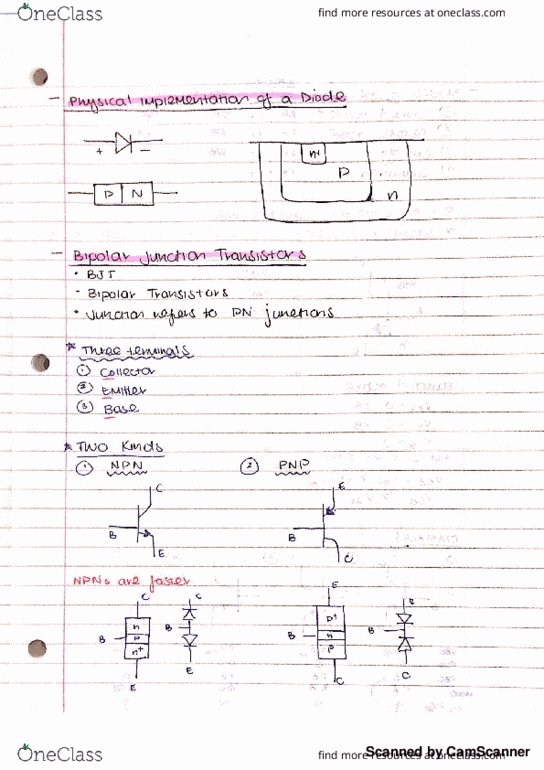 OneClass
find more resources at oneclass.com
- Physical implementation of a Diode
+ -
P N
n+
P
n
- Bipolar Junction Transistors
• BJT
- Bipolar Transistors
• Junction refers to PN junctions
* Three terminals
① Collector
② Emitter
③ Base
* Two Kinds
① NPN ② PNP
C E
B B
E C
NPNs are faster
C C E E
n P+
B P B B n B
n+ P
E E C C
OneClass
find more resources at oneclass.com
Scanned by CamScanner